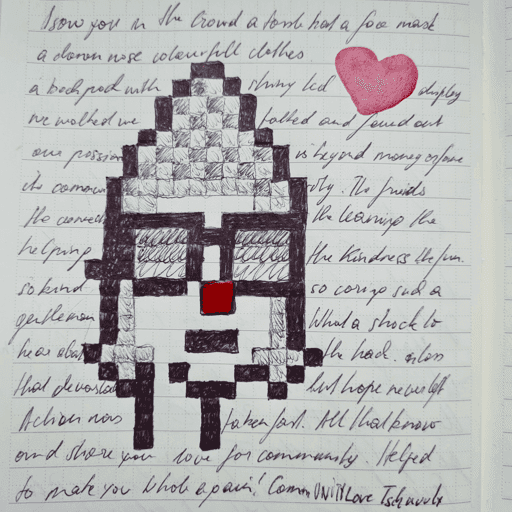 I saw you in the crowd a had a face mask
a clown nose colourfull clothes
a backpack with shiny led display
we walked we talked and found out
our passion is beyond money or fame
the community. The friends
the the learning the
helping the kindness the fun.
so kind so caring such a
gentleman What a shock to
hear about the hack.
that but hope never left
Action was taken fast. All that know
and share your love for community. Helped
to make you whole again! CommUNITYLove